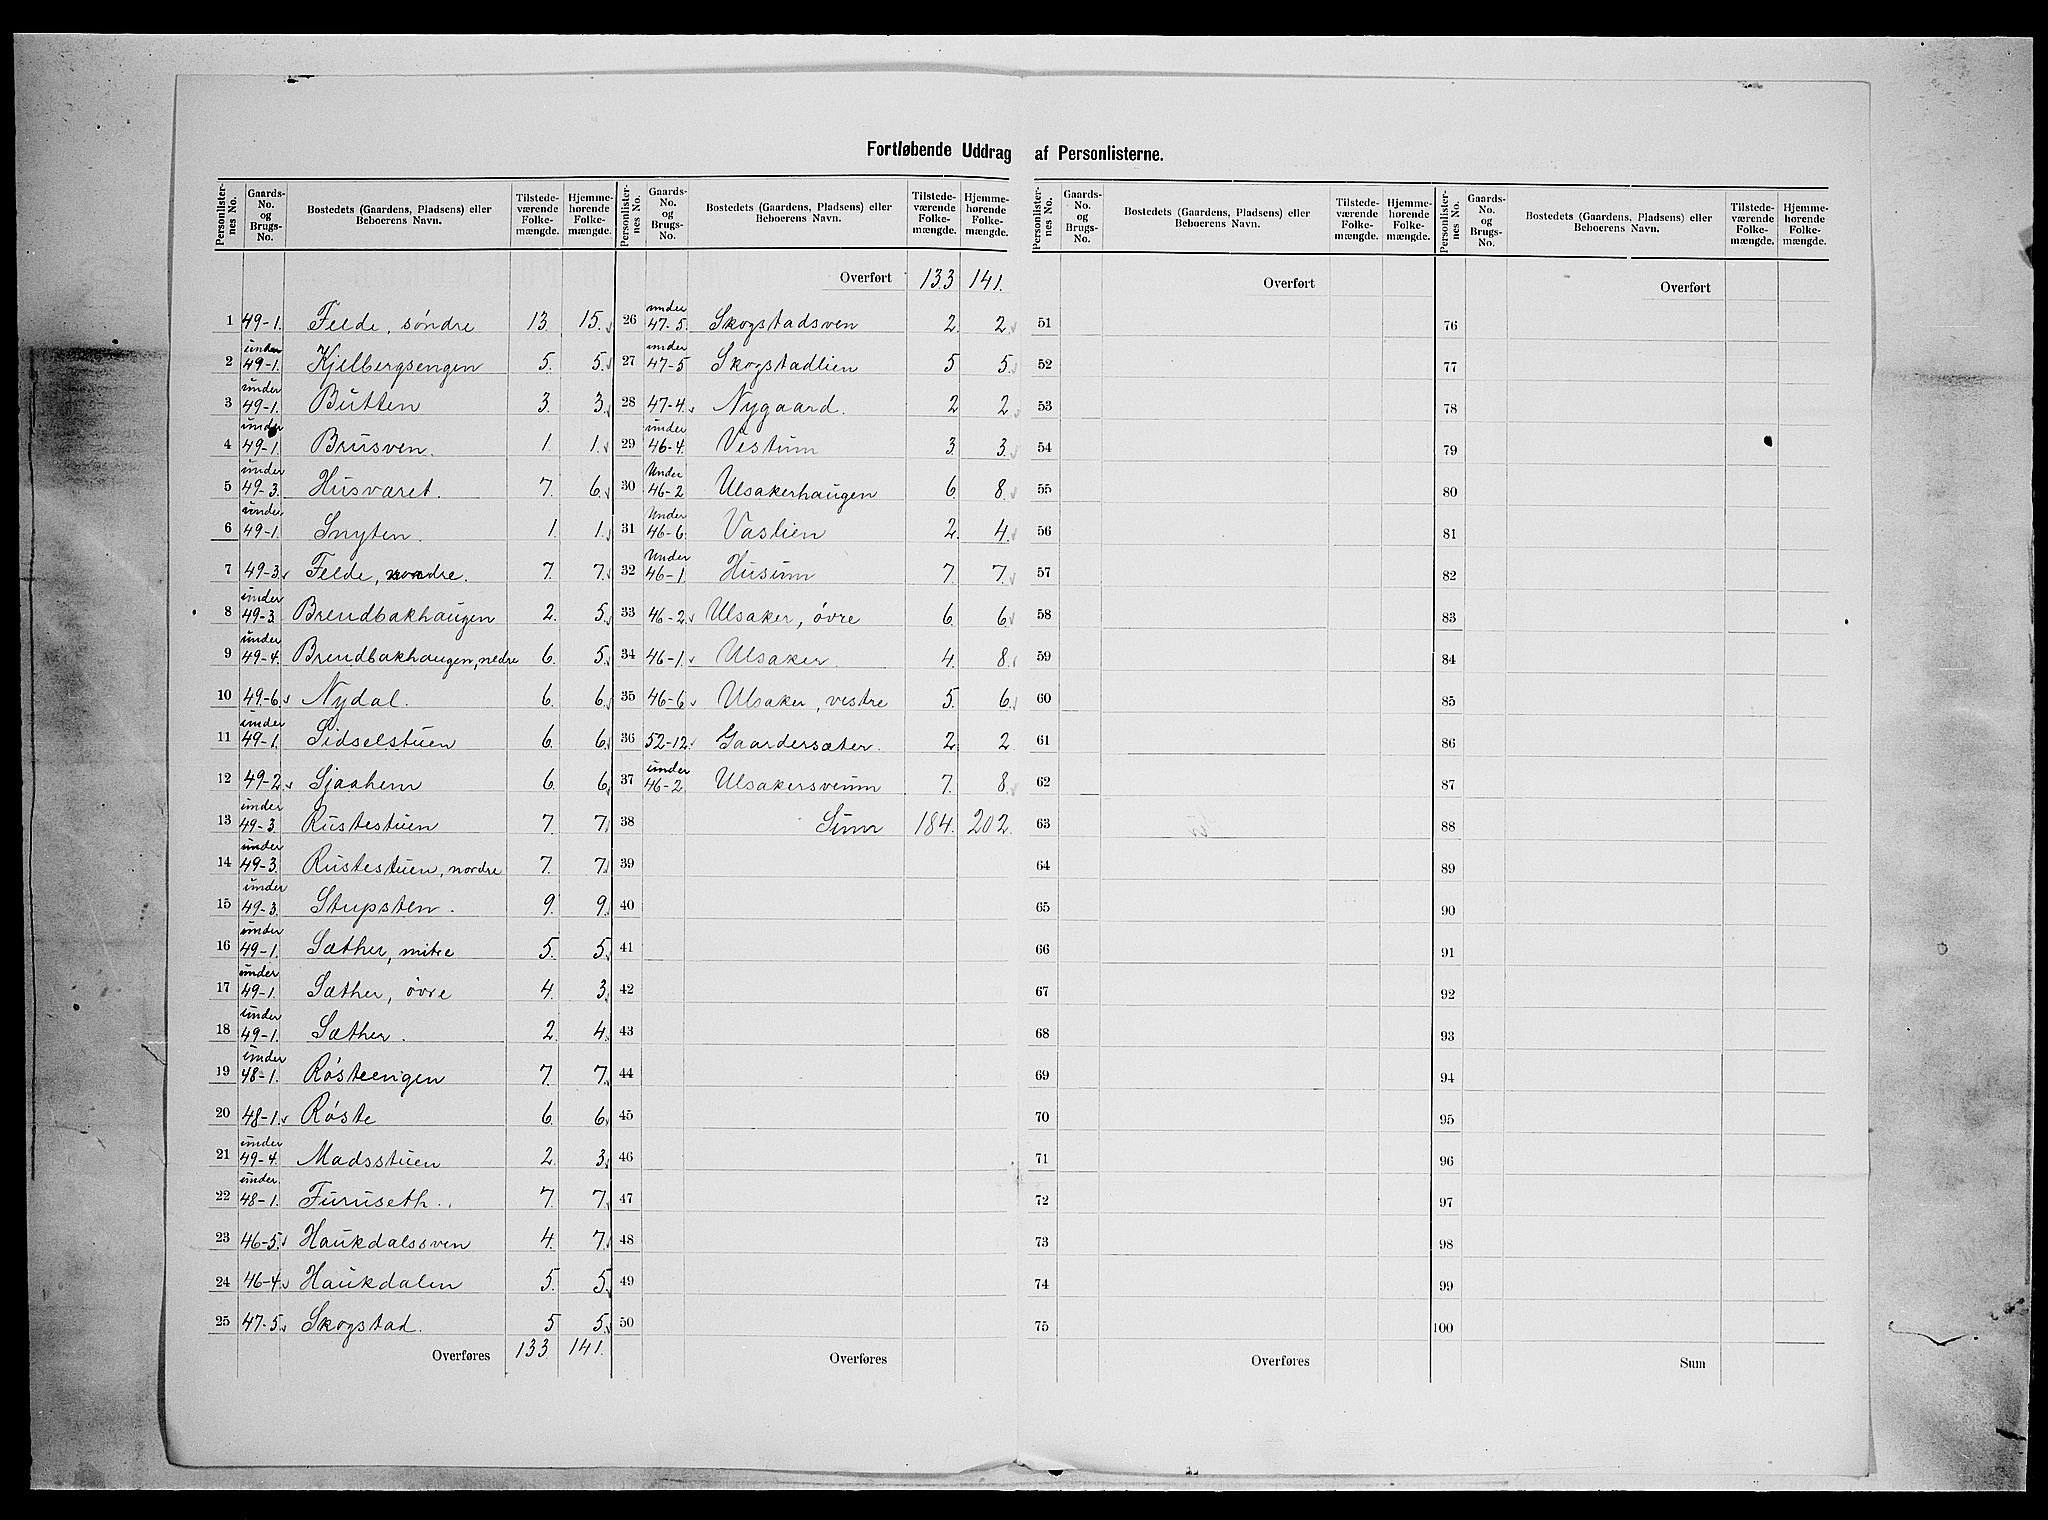 Fortløbende Uddrag af Personlisterne.
Personlisternes No. | Gaards-No. og Brugs-No. | Bostedets (Gaardens, Pladsens) eller Beboerens Navn. | Tilstedeværende Folkemængde. | Hjemmehørende Folkemængde.
1 49-1. Felde, söndre 13. 15.
2 under 49-1. Kjelbergsengen 5. 5.
3 under 49-1. Butten 3. 3.
4 under 49-1. Brusven. 1. 1.
5 under 49-3. Husværet. 7. 6.
6 under 49-1. Snyten. 1. 1.
7 49-3. Felde, nordre. 7. 7.
8 under 49-3. Brendbakhaugen 2. 5.
9 under 49-4. Brendbakhaugen, nedre 6. 5.
10 49-6 Nydal. 6. 6.
11 under 49-1. Sidselstuen 6. 6.
12 49-2 Sjaahem 6. 6.
13 under 49-3. Rustestuen 7. 7.
14 under 49-3. Rustestuen, nordre 7. 7.
15 under 49-3. Stupsten. 9. 9.
16 under 49-1. Sæther, mitre 5. 5.
17 under 49-1. Sæther, övre 4. 3.
18 under 49-1. Sæther. 2. 4.
19 under 48-1. Røsteengen 7. 7.
20 48-1. Røste 6. 6.
21 under 49-4. Madsstuen 2. 3.
22 under 48-1. Furuseth. 7. 7.
23 46-5. Haukdalssven 4. 7.
24 46-4 Haukdalen 5. 5.
25 47-5 Skogstad. 5 5.
Overføres 133. 141.
Personlisternes No. | Gaards-No. og Brugs-No. | Bostedets (Gaardens, Pladsens) eller Beboerens Navn. | Tilstedeværende Folkemængde. | Hjemmehørende Folkemængde.
Overført 133 141.
26 under 47-5. Skogstadsven 2. 2.
27 under 47-5 Skogstadlien 5 5.
28 47-4. Nygaard. 2 2.
29 under 46-4. Vestum 3. 3.
30 Under 46-2 Ulsakerhaugen 6. 8.
31 Under 46-6 Vaslien 2. 4.
32 Under 46-1 Husum 7. 7.
33 46-2 Ulsaker, övre 6. 6
34 46-1. Ulsaker. 4. 8.
35 46-6 Ulsaker, vestre 5. 6.
36 52-12. Gaardersæter. 2. 2
37 under 46-2 Ulsakersveum 7. 8.
38 Sum 184. 202.
39
40
41
42
43
44
45
46
47
48
49
50
Overføres
Personlisternes No. | Gaards-No. og Brugs-No. | Bostedets (Gaardens, Pladsens) eller Beboerens Navn. | Tilstedeværende Folkemængde. | Hjemmehørende Folkemængde.
Overført
51
52
53
54
55
56
57
58
59
60
61
62
63
64
65
66
67
68
69
70
71
72
73
74
75
Overføres
Personlisternes No. | Gaards-No. og Brugs-No. | Bostedets (Gaardens, Pladsens) eller Beboerens Navn. | Tilstedeværende Folkemængde. | Hjemmehørende Folkemængde.
Overført
76
77
78
79
80
81
82
83
84
85
86
87
88
89
90
91
92
93
94
95
96
97
98
99
100
Sum